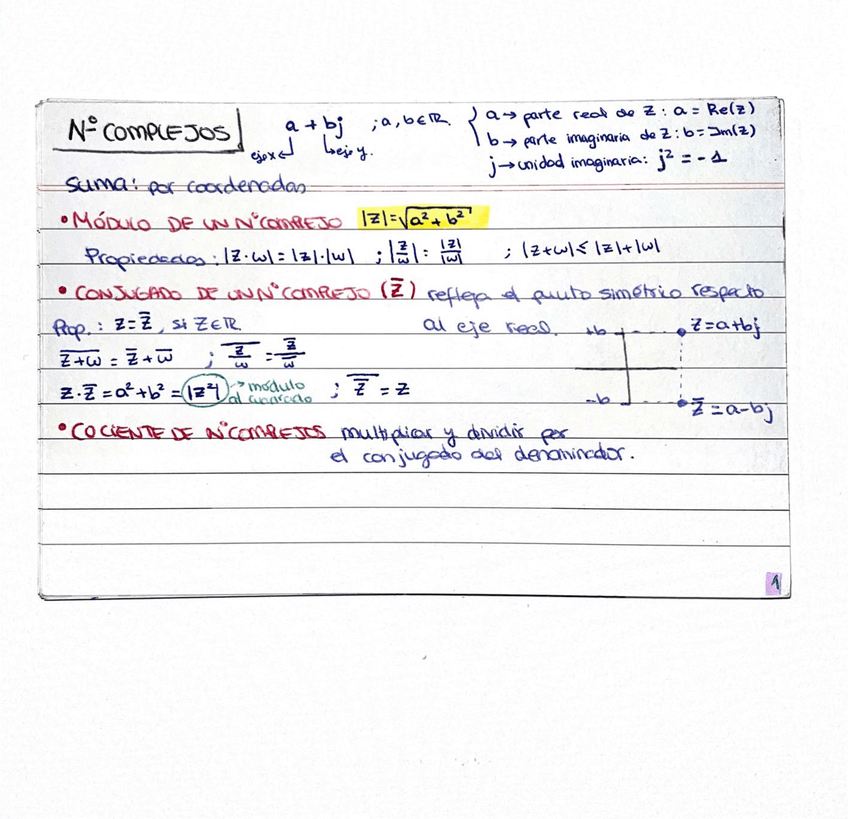 Nº COMPLEJOS
a + bj ; a, b ∈ ℝ
eje x eje y.
a → parte real de z : a = Re(z)
b → parte imaginaria de z : b = Im(z)
j → unidad imaginaria: j² = -1
Suma: por coordenadas
• MÓDULO DE UN Nº COMPLEJO |z| = √(a² + b²)
Propiedades : |z · w| = |z| · |w| ; |z/w| = |z|/|w| ; |z + w| ≤ |z| + |w|
• CONJUGADO DE UN Nº COMPLEJO (z̅) refleja el punto simétrico respecto
al eje real.
Prop. : z = z̅, si z ∈ ℝ
\overline{z + w} = z̅ + w̅ ; \overline{z/w} = z̅/w̅
z · z̅ = a² + b² = |z²| → módulo
al cuadrado
; \overline{z̅} = z
+b z = a + bj
-b z̅ = a - bj
• COCIENTE DE Nº COMPLEJOS multiplicar y dividir por
el conjugado del denominador.
1